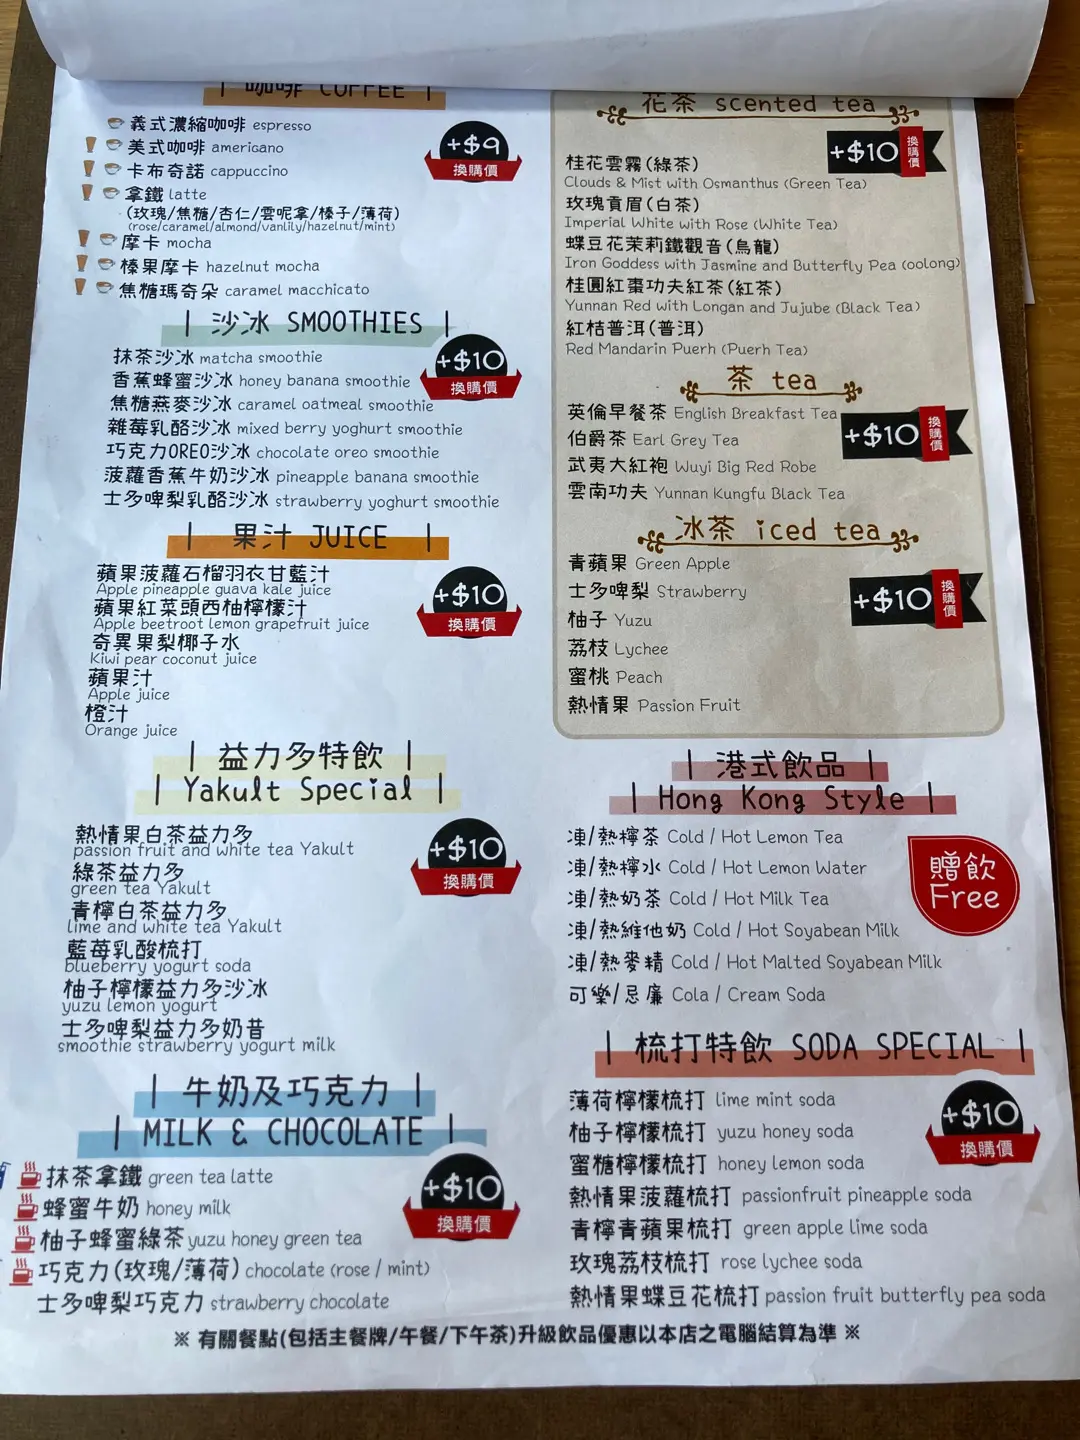 | 咖啡 COFFEE |
義式濃縮咖啡 espresso
美式咖啡 americano
卡布奇諾 cappuccino
拿鐵 latte
(玫瑰/焦糖/杏仁/雲呢拿/榛子/薄荷)
(rose/caramel/almond/vanlily/hazelnut/mint)
摩卡 mocha
榛果摩卡 hazelnut mocha
焦糖瑪奇朵 caramel macchicato
+$9
換購價
| 沙冰 SMOOTHIES |
抹茶沙冰 matcha smoothie
香蕉蜂蜜沙冰 honey banana smoothie
焦糖燕麥沙冰 caramel oatmeal smoothie
雜莓乳酪沙冰 mixed berry yoghurt smoothie
巧克力OREO沙冰 chocolate oreo smoothie
菠蘿香蕉牛奶沙冰 pineapple banana smoothie
士多啤梨乳酪沙冰 strawberry yoghurt smoothie
+$10
換購價
| 果汁 JUICE |
蘋果菠蘿石榴羽衣甘藍汁
Apple pineapple guava kale juice
蘋果紅菜頭西柚檸檬汁
Apple beetroot lemon grapefruit juice
奇異果梨椰子水
Kiwi pear coconut juice
蘋果汁
Apple juice
橙汁
Orange juice
+$10
換購價
| 益力多特飲 |
| Yakult Special |
熱情果白茶益力多
passion fruit and white tea Yakult
綠茶益力多
green tea Yakult
青檸白茶益力多
lime and white tea Yakult
藍莓乳酸梳打
blueberry yogurt soda
柚子檸檬益力多沙冰
yuzu lemon yogurt
士多啤梨益力多奶昔
smoothie strawberry yogurt milk
+$10
換購價
| 牛奶及巧克力 |
| MILK & CHOCOLATE |
抹茶拿鐵 green tea latte
蜂蜜牛奶 honey milk
柚子蜂蜜綠茶 yuzu honey green tea
巧克力(玫瑰/薄荷) chocolate (rose / mint)
士多啤梨巧克力 strawberry chocolate
+$10
換購價
花茶 scented tea
+$10
換購價
桂花雲霧(綠茶)
Clouds & Mist with Osmanthus (Green Tea)
玫瑰貢眉(白茶)
Imperial White with Rose (White Tea)
蝶豆花茉莉鐵觀音(烏龍)
Iron Goddess with Jasmine and Butterfly Pea (oolong)
桂圓紅棗功夫紅茶(紅茶)
Yunnan Red with Longan and Jujube (Black Tea)
紅桔普洱(普洱)
Red Mandarin Puerh (Puerh Tea)
茶 tea
英倫早餐茶 English Breakfast Tea
伯爵茶 Earl Grey Tea
武夷大紅袍 Wuyi Big Red Robe
雲南功夫 Yunnan Kungfu Black Tea
+$10
換購價
冰茶 iced tea
青蘋果 Green Apple
士多啤梨 Strawberry
柚子 Yuzu
荔枝 Lychee
蜜桃 Peach
熱情果 Passion Fruit
+$10
換購價
| 港式飲品 |
| Hong Kong Style |
凍/熱檸茶 Cold / Hot Lemon Tea
凍/熱檸水 Cold / Hot Lemon Water
凍/熱奶茶 Cold / Hot Milk Tea
凍/熱維他奶 Cold / Hot Soyabean Milk
凍/熱麥精 Cold / Hot Malted Soyabean Milk
可樂/忌廉 Cola / Cream Soda
贈飲
Free
| 梳打特飲 SODA SPECIAL |
薄荷檸檬梳打 lime mint soda
柚子檸檬梳打 yuzu honey soda
蜜糖檸檬梳打 honey lemon soda
熱情果菠蘿梳打 passionfruit pineapple soda
青檸青蘋果梳打 green apple lime soda
玫瑰荔枝梳打 rose lychee soda
熱情果蝶豆花梳打 passion fruit butterfly pea soda
+$10
換購價
※ 有關餐點(包括主餐牌/午餐/下午茶)升級飲品優惠以本店之電腦結算為準 ※